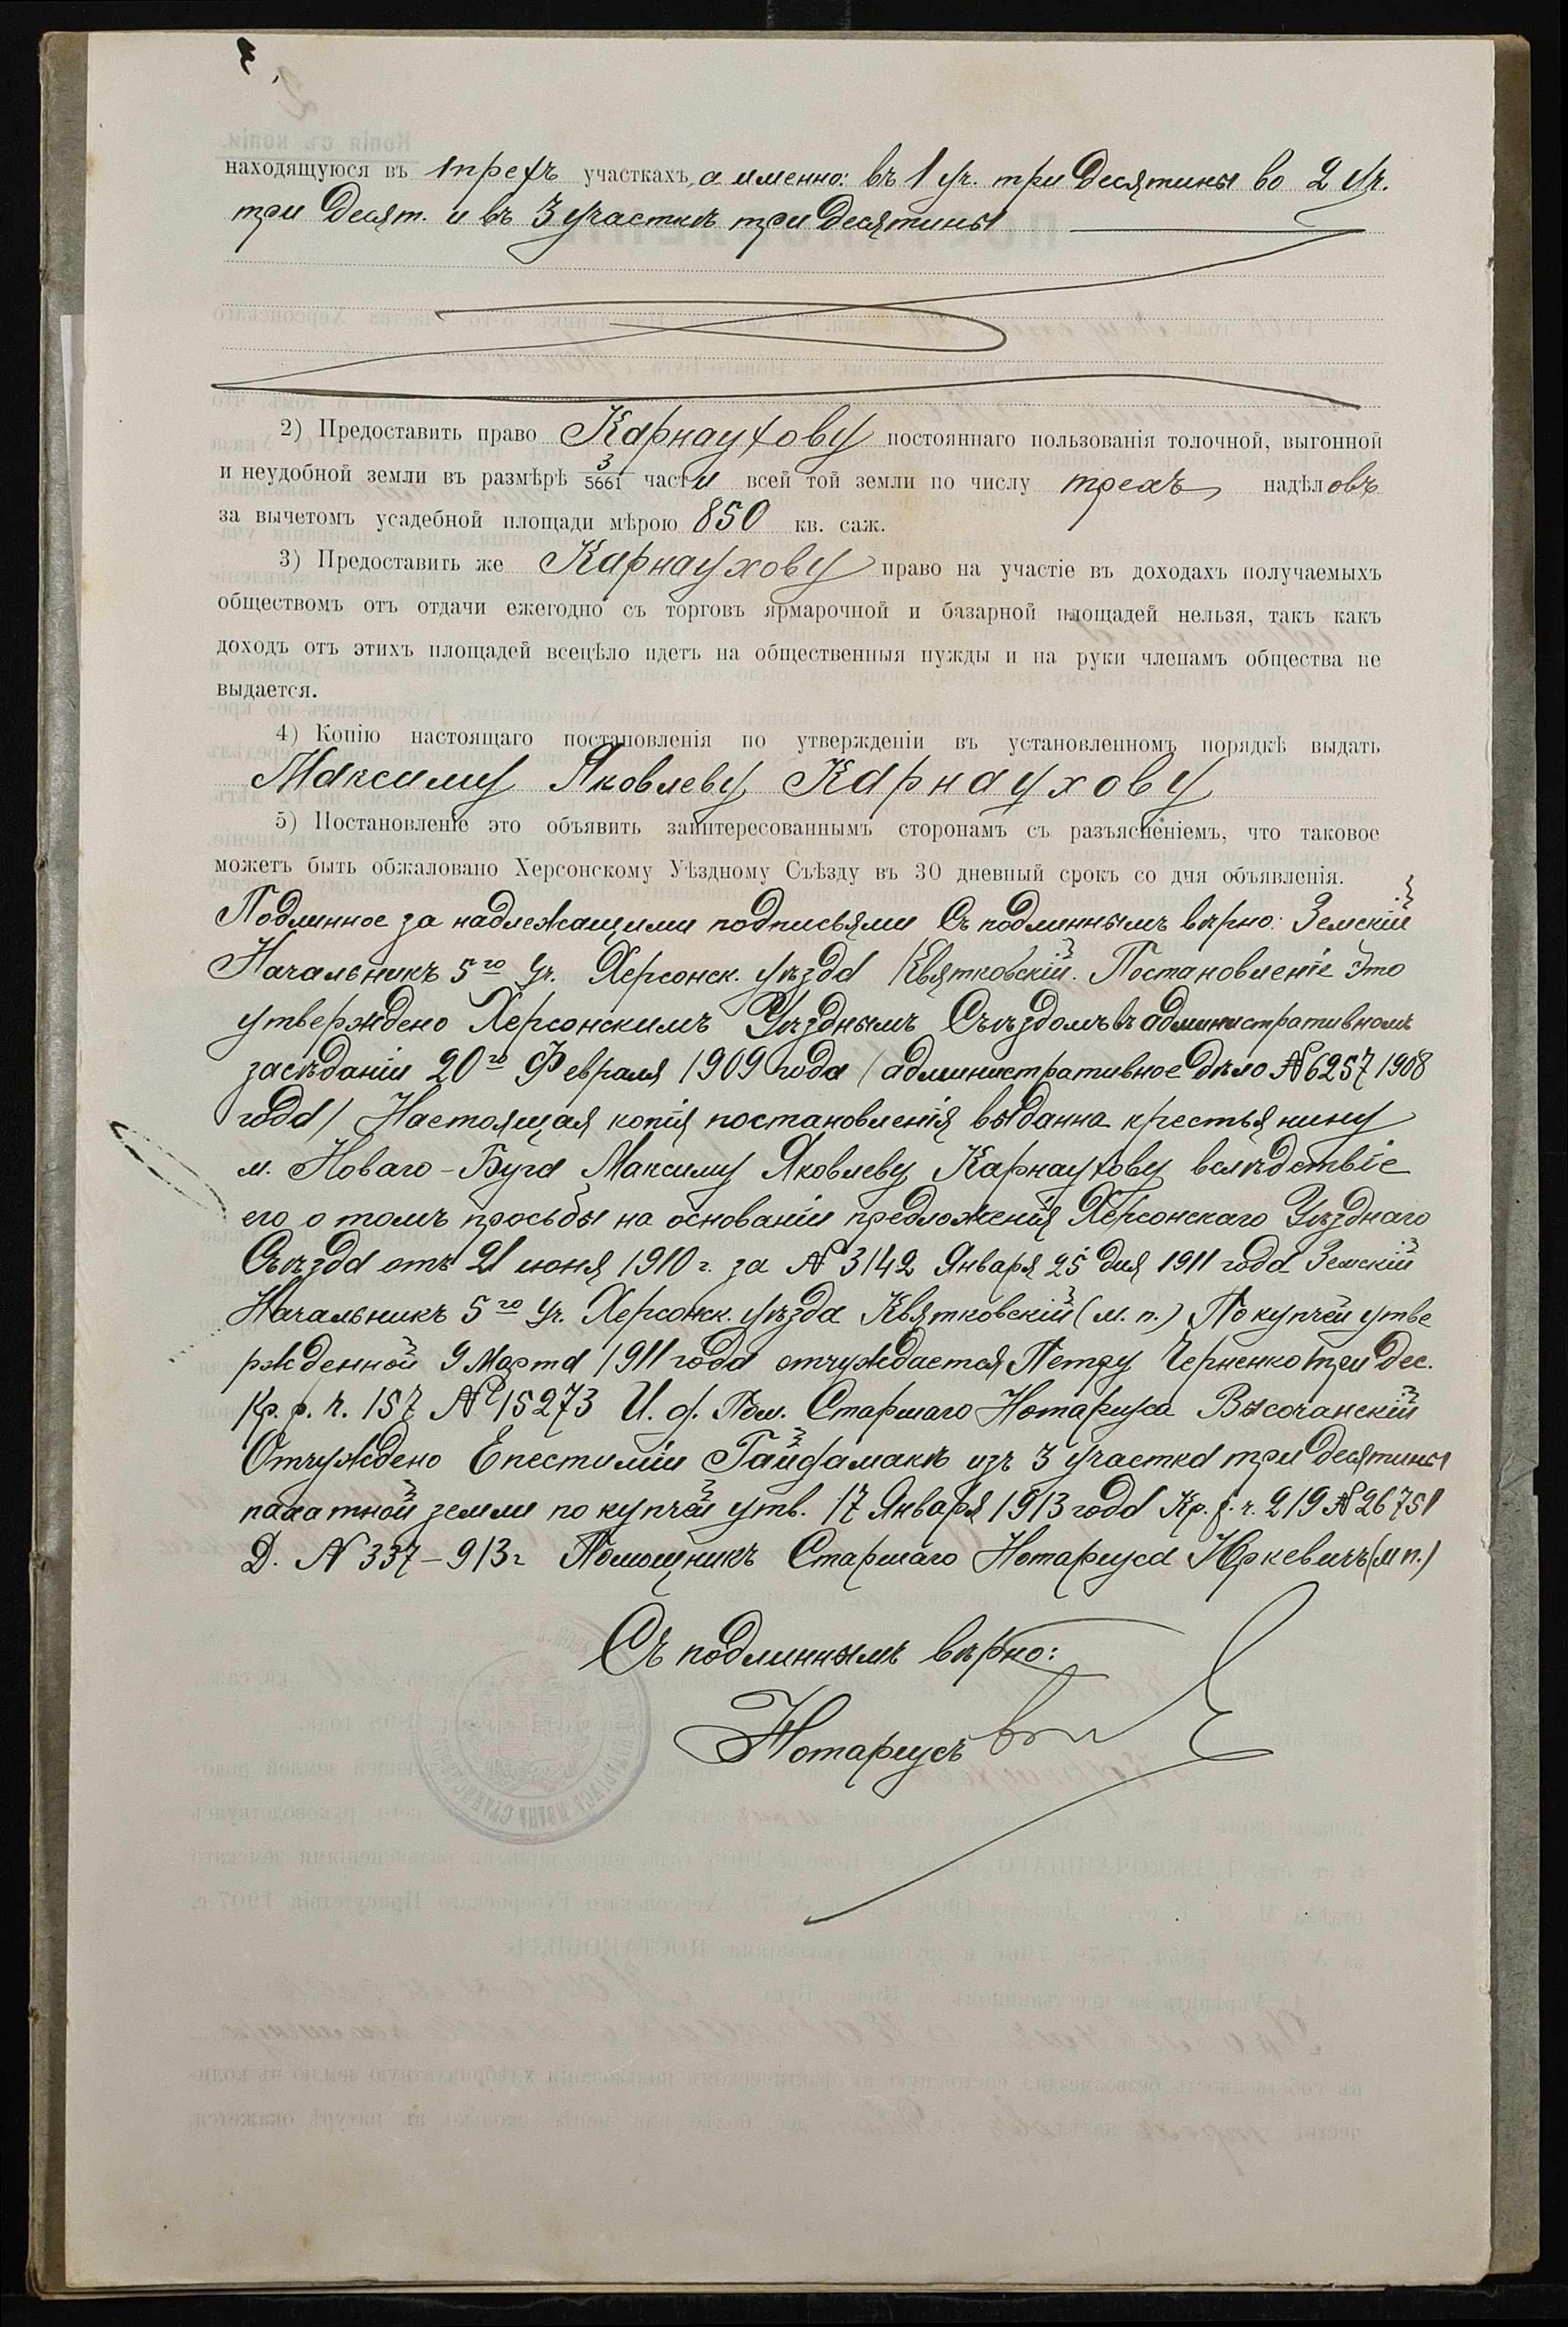 находящуюся въ трехъ участкахъ, а именно: въ 1 уч. три десятины во 2 уч.
три десят. и въ 3 участкѣ три десятины
2) Предоставить право Карнаухову постояннаго пользованія толочной, выгонной
и неудобной земли въ размѣрѣ 3/5661 части всей той земли по числу трехъ надѣловъ
за вычетомъ усадебной площади мѣрою 850 кв. саж.
3) Предоставить же Карнаухову право на участіе въ доходахъ получаемыхъ
обществомъ отъ отдачи ежегодно съ торговъ ярмарочной и базарной площадей нельзя, такъ какъ
доходъ отъ этихъ площадей всецѣло идетъ на общественныя нужды и на руки членамъ общества не
выдается.
4) Копію настоящаго постановленія по утвержденіи въ установленномъ порядкѣ выдать
Максиму Яковлеву Карнаухову
5) Постановленіе это объявить заинтересованнымъ сторонамъ съ разъясненіемъ, что таковое
можетъ быть обжаловано Херсонскому Уѣздному Съѣзду въ 30 дневный срокъ со дня объявленія.
Подлинное за надлежащими подписьями Съ подлиннымъ вѣрно: Земскій
Начальникъ 5го Уч. Херсонск. уѣзда Квятковскій. Постановленіе это
утверждено Херсонскимъ Уѣзднымъ Съѣздомъ въ административномъ
засѣданіи 20го Февраля 1909 года (административное дѣло № 6257 1908
года) Настоящая копія постановленія выданна крестьянину
м. Новаго-Буга Максиму Яковлеву Карнаухову вслѣдствіе
его о томъ просьбы на основаніи предложенія Херсонскаго Уѣзднаго
Съѣзда отъ 21 июня 1910 г. за № 3142 Января 25 дня 1911 года Земскій
Начальникъ 5го Уч. Херсонск. уѣзда Квятковскій (м. п.) По купчей утве
ржденной 9 Марта 1911 года отчуждается Петру Черненко три дес.
Кр. р. ч. 157 № 15273 И. д. Пом. Старшаго Нотаріуса Высочанскій
Отчуждено Епестиміи Гайдамакѣ изъ 3 участка три десятины
пахатной земли по купчей утв. 17 Января 1913 года Кр. р. ч. 219 № 26751
Д. № 337-913 г Помощникъ Старшаго Нотаріуса Юркевичъ (м п.)
Съ подлиннымъ вѣрно:
Нотаріусъ